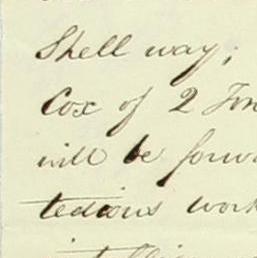 Shell way;
Cox of 2 Ton
will be forw
tedious work